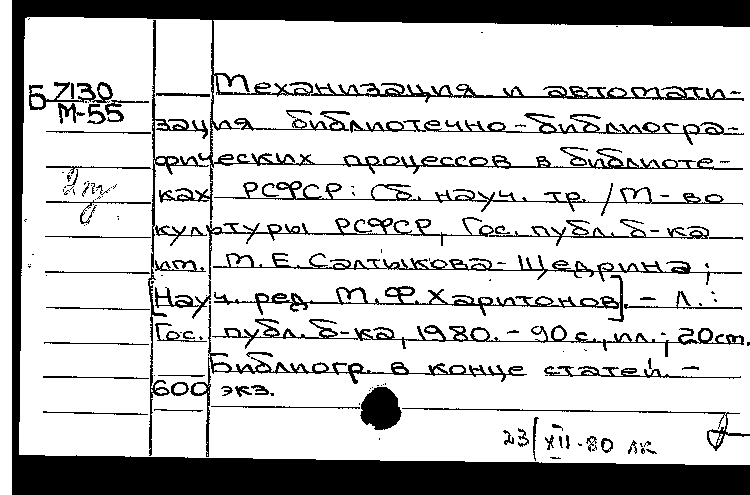 Б 7130
М-55
Механизация и автомати-
зация библиотечно-библиогра-
фических процессов в библиоте-
ках РСФСР: Сб. науч. тр. / М-во
культуры РСФСР, Гос. публ. б-ка
им. М. Е. Салтыкова-Щедрина;
[Науч. ред. М. Ф. Харитонов]. - Л.:
Гос. публ. б-ка, 1980. - 90 с., ил.; 20 см.
Библиогр. в конце статей. -
600 экз.
23/XII-80 лк